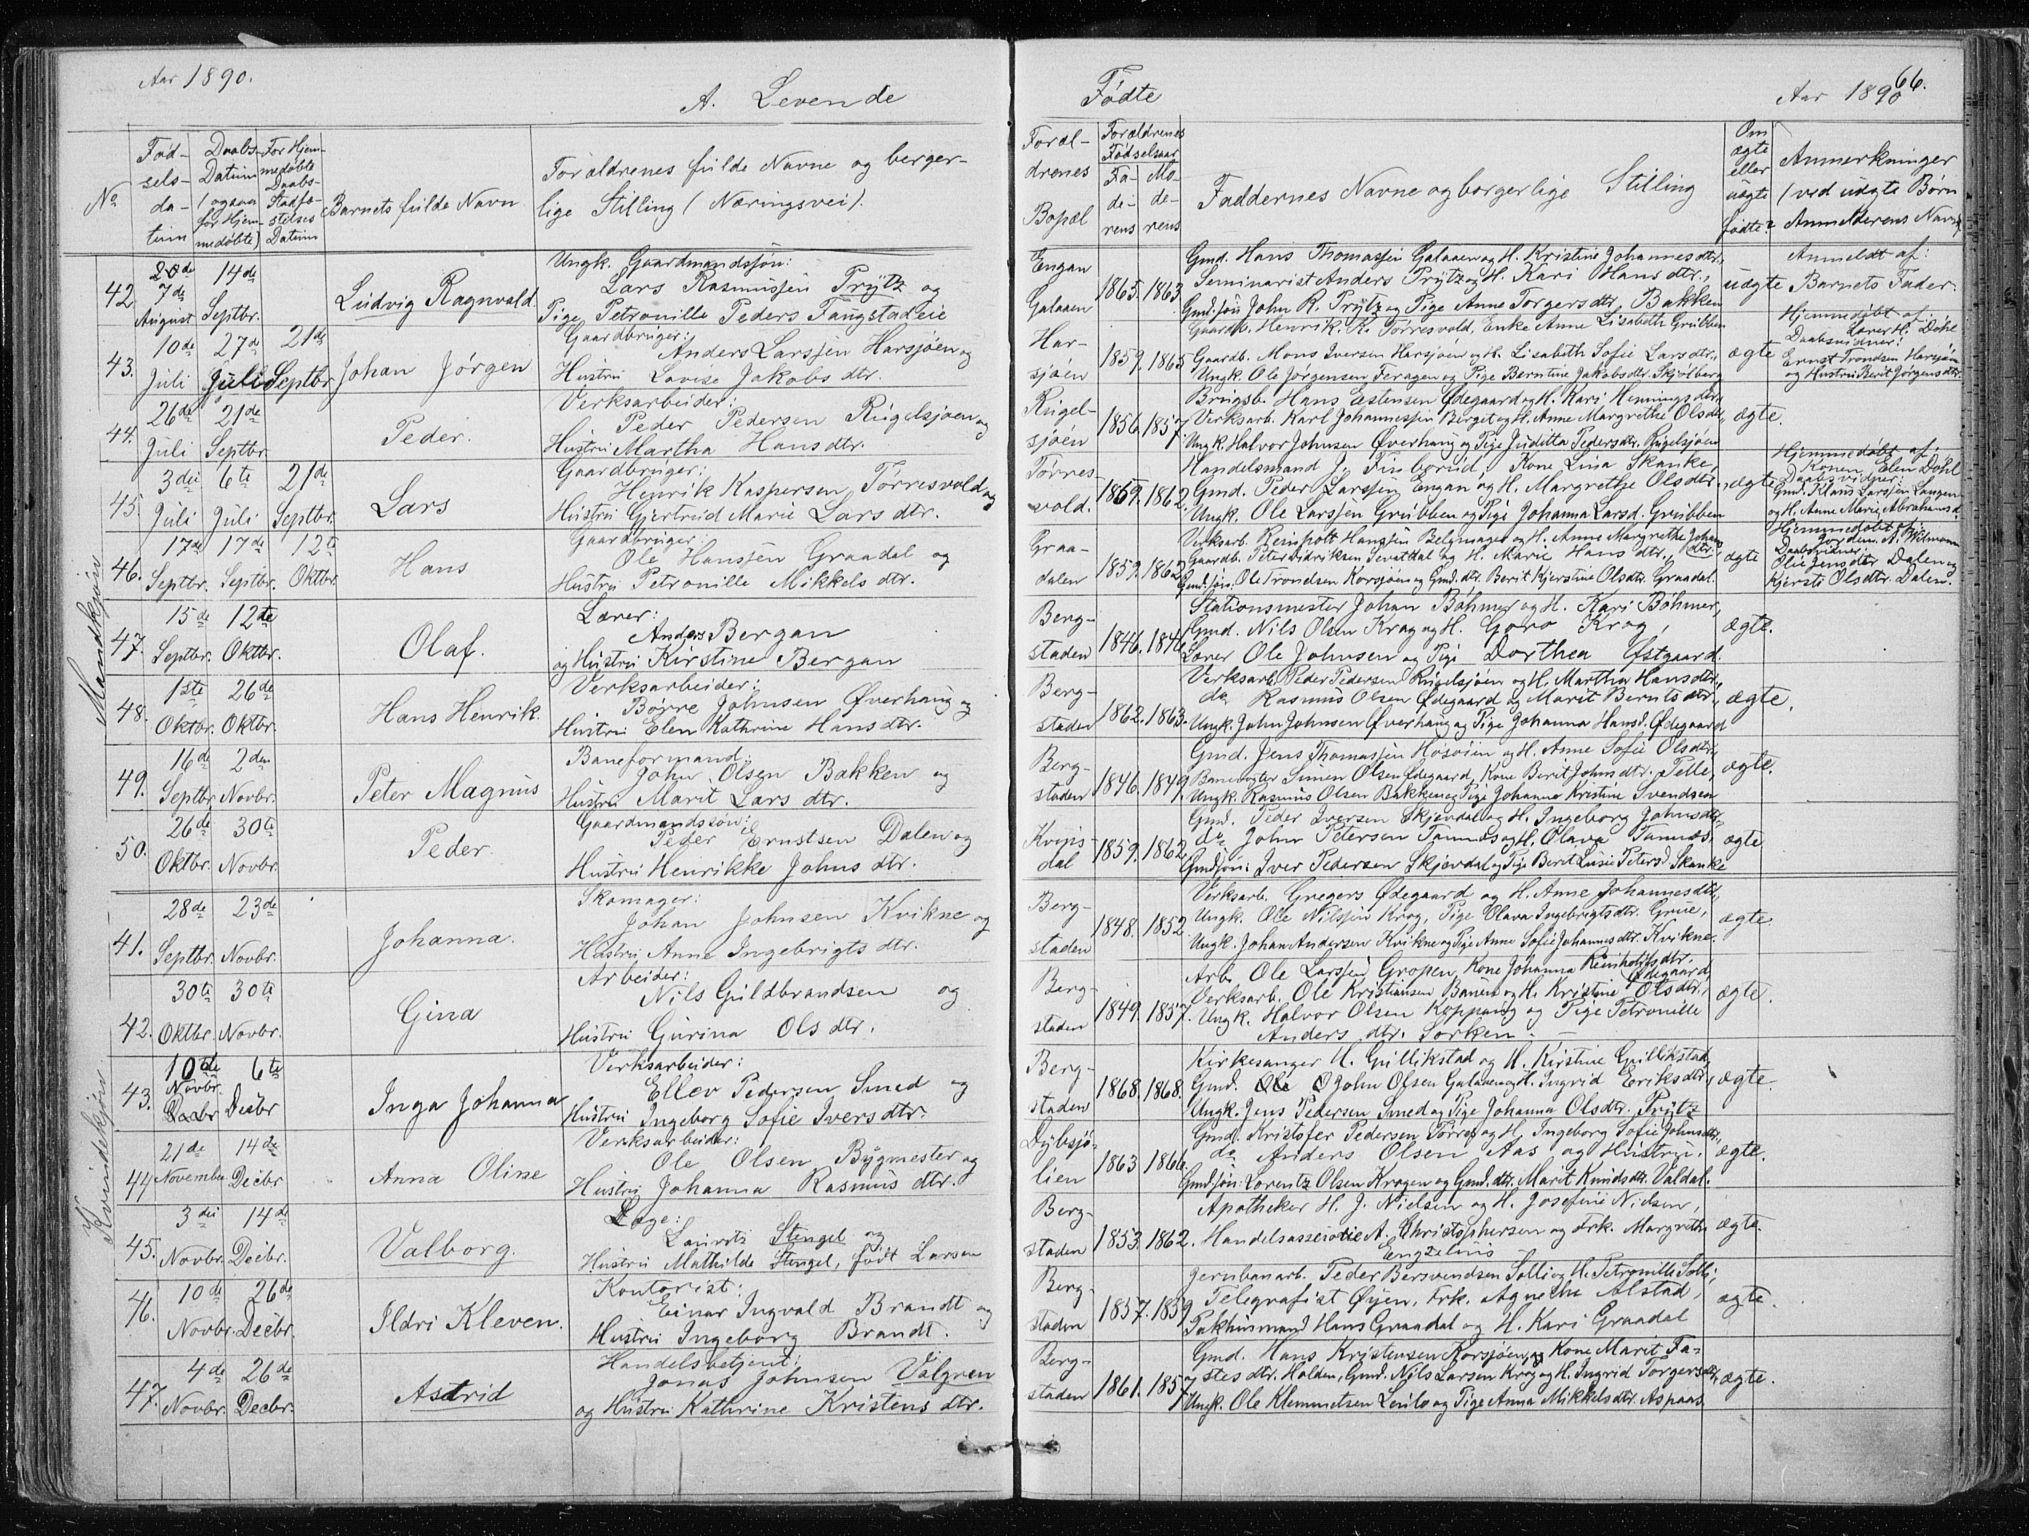 Aar 1890.
A. Levende
Fødte
Aar 1890
66.
No
Fød-
sels-
da-
tum
Daabs-
Datum
(ogsaa
for Hjem-
medøbte)
For Hjem-
medøbte
Daabs-
Stadfæ-
stelses
Datum
Barnets fulde Navn
Forældrenes fulde Navne og borger-
lige Stilling (Næringsvei).
Foræl-
drenes
Bopæl
Forældrenes
Fødselsaar
Fa-
de-
rens
Mo-
de-
rens
Faddernes Navne og borgerlige Stilling
Om
ægte
eller
uægte
født?
Anmerkninger
(ved uægte Børn
Anmelderens Navn)
Mandkjøn
42
7de
August
14de
Septbr.
Ludvig Ragnvald.
Ungk. Gaardmandssøn:
Lars Rasmussen Prytz og
Pige Petronille Peders Fangstadeie
Engan
Galaaen
1865. 1863.
Gmd. Hans Thomassen Galaaen og H. Kristine Johannesdtr.
Seminarist Anders Prytz og H. Kari Hansdtr.,
Gmd.søn John R. Prytz og Pige Anne Torgersdtr. Bakken
uægte
Anmeldt af:
Barnets Fader.
43.
10de
Juli
27de
Juli
21de
Septbr.
Johan Jørgen
Gaardbruger:
Anders Larssen Harsjøen og
Hustru Lovise Jakobs dtr.
Har-
sjøen
1859. 1865
Gaardb. Henrik K. Torresvold, Enke Anne Lisabeth Grubben
Gaardb. Mons Iversen Harsjøen og H. Lisabeth Sofie Larsdtr.,
Ungk. Ole Jørgensen Feragen og Pige Berntine Jakobsdtr. Skjølberg
ægte
Hjemmedøbt af:
Lærer H. Døhl
Daabsvidner:
Ernst Trondsen Harsjøen
og Hustru Berit Jørgensdtr.
44.
26de
Juli
21de
Septbr.
Peder.
Verksarbeider:
Peder Pedersen Rugelsjøen og
Hustru Martha Hansdtr.
Rugel-
sjøen
1856. 1857.
Brugsb. Hans Estensen Ødegaard og H. Kari Henningsdtr.
Verksarb. Karl Johannessen Berget og H. Anne Margrethe Olsdtr.,
Ungk. Halvor Johnsen Øverhaug og Pige Juditta Pedersdtr. Rugelsjøen
ægte.
45.
3die
Juli
6te
Juli
21de
Septbr.
Lars
Gaardbruger:
Henrik Kaspersen Torresvold og
Hustru Gjertrud Marie Lars dtr.
Torres-
vold.
1869. 1862.
Handelsmand J. Finborud, Kone Lina Skanke,
Gmd. Peder Larssen Engan og H. Margrethe Olsdtr.,
Ungk. Ole Larssen Grubben og Pige Johanna Larsd. Grubben
ægte
Hjemmedøbt af:
Konen Elen Døhl
Daabsvidner:
Gmd. Klaus Larssen Langen
og H. Anne Marie Abrahamsd.
46.
17de
Septbr.
17de
Septbr.
12te
Oktbr.
Hans
Gaardbruger:
Ole Hanssen Graadal og
Hustru Petronille Mikkels dtr.
Graa-
dalen
1859. 1862
Verksarb. Reinholt Hanssen Belgmager og H. Anne Margrethe Johnsdtr.
Gaardb. Peter Didriksen Sevatdal og H. Marie Hans dtr.,
Gmd.søn. Ole Trondsen Korssjøen og Gmd.dtr. Berit Kjerstine Olsdtr. Graadal.
ægte
Hjemmedøbt af:
Jordem. A. Wilmann
Daabsvidner:
Olie Jensdtr Dalen og
Kjersti Olsdtr. Dalen.
47.
15de
Septbr.
12te
Oktbr.
Olaf.
Lærer:
Anders Bergan
og Hustru Kirstine Bergan
Berg-
staden
1846. 1846
Stationsmester Johan Bøhmer og H. Kari Bøhmer,
Gmd. Nils Olsen Krog og H. Goro Krog,
Lærer Ole Johnsen og Pige Dorthea Østgaard.
ægte.
48.
1ste
Oktbr.
26de
Oktbr.
Hans Henrik.
Verksarbeider:
Børre Johnsen Øverhaug og
Hustru Elen Kathrine Hansdtr.
Berg-
staden
1862. 1863.
Verksarb. Peder Pedersen Rugelsjøen og H. Martha Hansdtr.,
do Rasmus Olsen Ødegaard og Marit Berntsdtr.,
Ungk. John Johnsen Øverhaug og Pige Johanna Hansd. Ødegaard
ægte.
49.
16de
Septbr.
2den
Novbr.
Peter Magnus
Baneformand:
John Olsen Bakken og
Hustru Marit Lars dtr.
Berg-
staden
1846. 1849.
Gmd. Jens Thomassen Høsøien og H. Anne Sofie Olsdtr.,
Banevogter Simen Olsen Ødegaard, Kone Berit Johnsdtr. Pelle,
Ungk. Rasmus Olsen Bakken og Pige Johanna Kristine Svendsen
ægte.
50.
26de
Oktbr.
30te
Novbr.
Peder.
Gaardmandssøn:
Peder Ernstsen Dalen og
Hustru Henrikke Johns dtr.
Kvips-
dal
1859. 1862
Gmd. Peder Iversen Skjevdal og H. Ingeborg Johnsdtr.,
do John Petersen Tamnes og H. Olava Tamnes,
Gmd.søn: Iver Pedersen Skjevdal og Pige Berit Lusie Petersd. Skanke
ægte
Kvindekjøn
41.
28de
Septbr.
23de
Novbr.
Johanna.
Skomager:
Johan Johnsen Kvikne og
Hustru Anne Ingebrigts dtr.
Berg-
staden
1848. 1852.
Verksarb. Gregers Ødegaard og H. Anne Johannesdtr.,
Ungk. Ole Nilssen Krog, Pige Olava Ingebrigtsdtr. Grue,
Ungk. Johan Andersen Kvikne og Pige Anne Sofie Johannesdtr. Kvikne.
ægte.
42.
30te
Oktbr.
30te
Novbr.
Gina
Arbeider:
Nils Guldbrandsen og
Hustru Gurina Ols dtr.
Berg-
staden
1849. 1857.
Arb. Ole Larssen Gropen, Kone Johanna Reinholtsdtr. Ødegaard
Verksarb. Ole Kristiansen Banen og H. Kristine Olsdtr.,
Ungk. Halvor Olsen Koppang og Pige Petronille
Anders dtr. Sorken.
ægte.
43.
10de
Novbr.
6te
Decbr
Inga Johanna
Verksarbeider:
Ellev Pedersen Smed og
Hustru Ingeborg Sofie Iversdtr.
Berg-
staden
1868. 1868.
Kirkesanger H. Gullikstad og H. Kirstine Gullikstad,
Gmd. John Olsen Galaaen og H. Ingrid Eriksdtr.,
Ungk. Jens Pedersen Smed og Pige Johanna Olsdtr. Prytz
ægte.
44
21de
November
14de
Decbr
Anna Oline
Verksarbeider:
Ole Olsen Bygmester og
Hustru Johanna Rasmus dtr.
Djubsjø-
lien
1863 1866
Gmd. Kristofer Pedersen Torres og H. Ingeborg Sofie Johnsdtr.,
do Anders Olsen Aas og Hustru,
Gmd.søn: Lorentz Olsen Krogen og Gmd.dtr. Marit Knudsdtr. Valdal.
ægte.
45.
3die
Novbr.
14de
Decbr.
Valborg.
Læge:
Laurits Stengel og
Hustru Mathilde Stengel, født Larsen
Berg-
staden
1853. 1862.
Apotheker H. J. Nielsen og H. Josefine Nielsen,
Handelsassessor A. Christophersen og Frk. Margrethe
Engzelius
ægte.
46.
10de
Novbr.
26de
Decbr.
Ildri Kleven.
Kontorist:
Einar Ingvald Brandt og
Hustru Ingeborg Brandt.
Berg-
staden
1857. 1859
Jernbanarb. Peder Bersvendsen Solli og H. Petronille Solli,
Telegrafist Øyen, Frk. Agnethe Alstad,
Pakhusmand Hans Graadal og H. Kari Graadal
ægte.
47.
4de
Novbr.
26de
Decbr.
Astrid
Handelsbetjent:
Jonas Johnsen Valgren
og Hustru Kathrine Kristens dtr.
Berg-
staden
1861. 1857
Gmd. Hans Kristensen Korsjøen, og Kone Marit Fa-
stes dtr. Holden, Gmd. Nils Larsen Krog og H. Ingrid Torgersdtr.,
Ungk. Ole Klemmetsen Lenilo og Pige Anna Mikkelsdtr. Aspaas.
ægte.